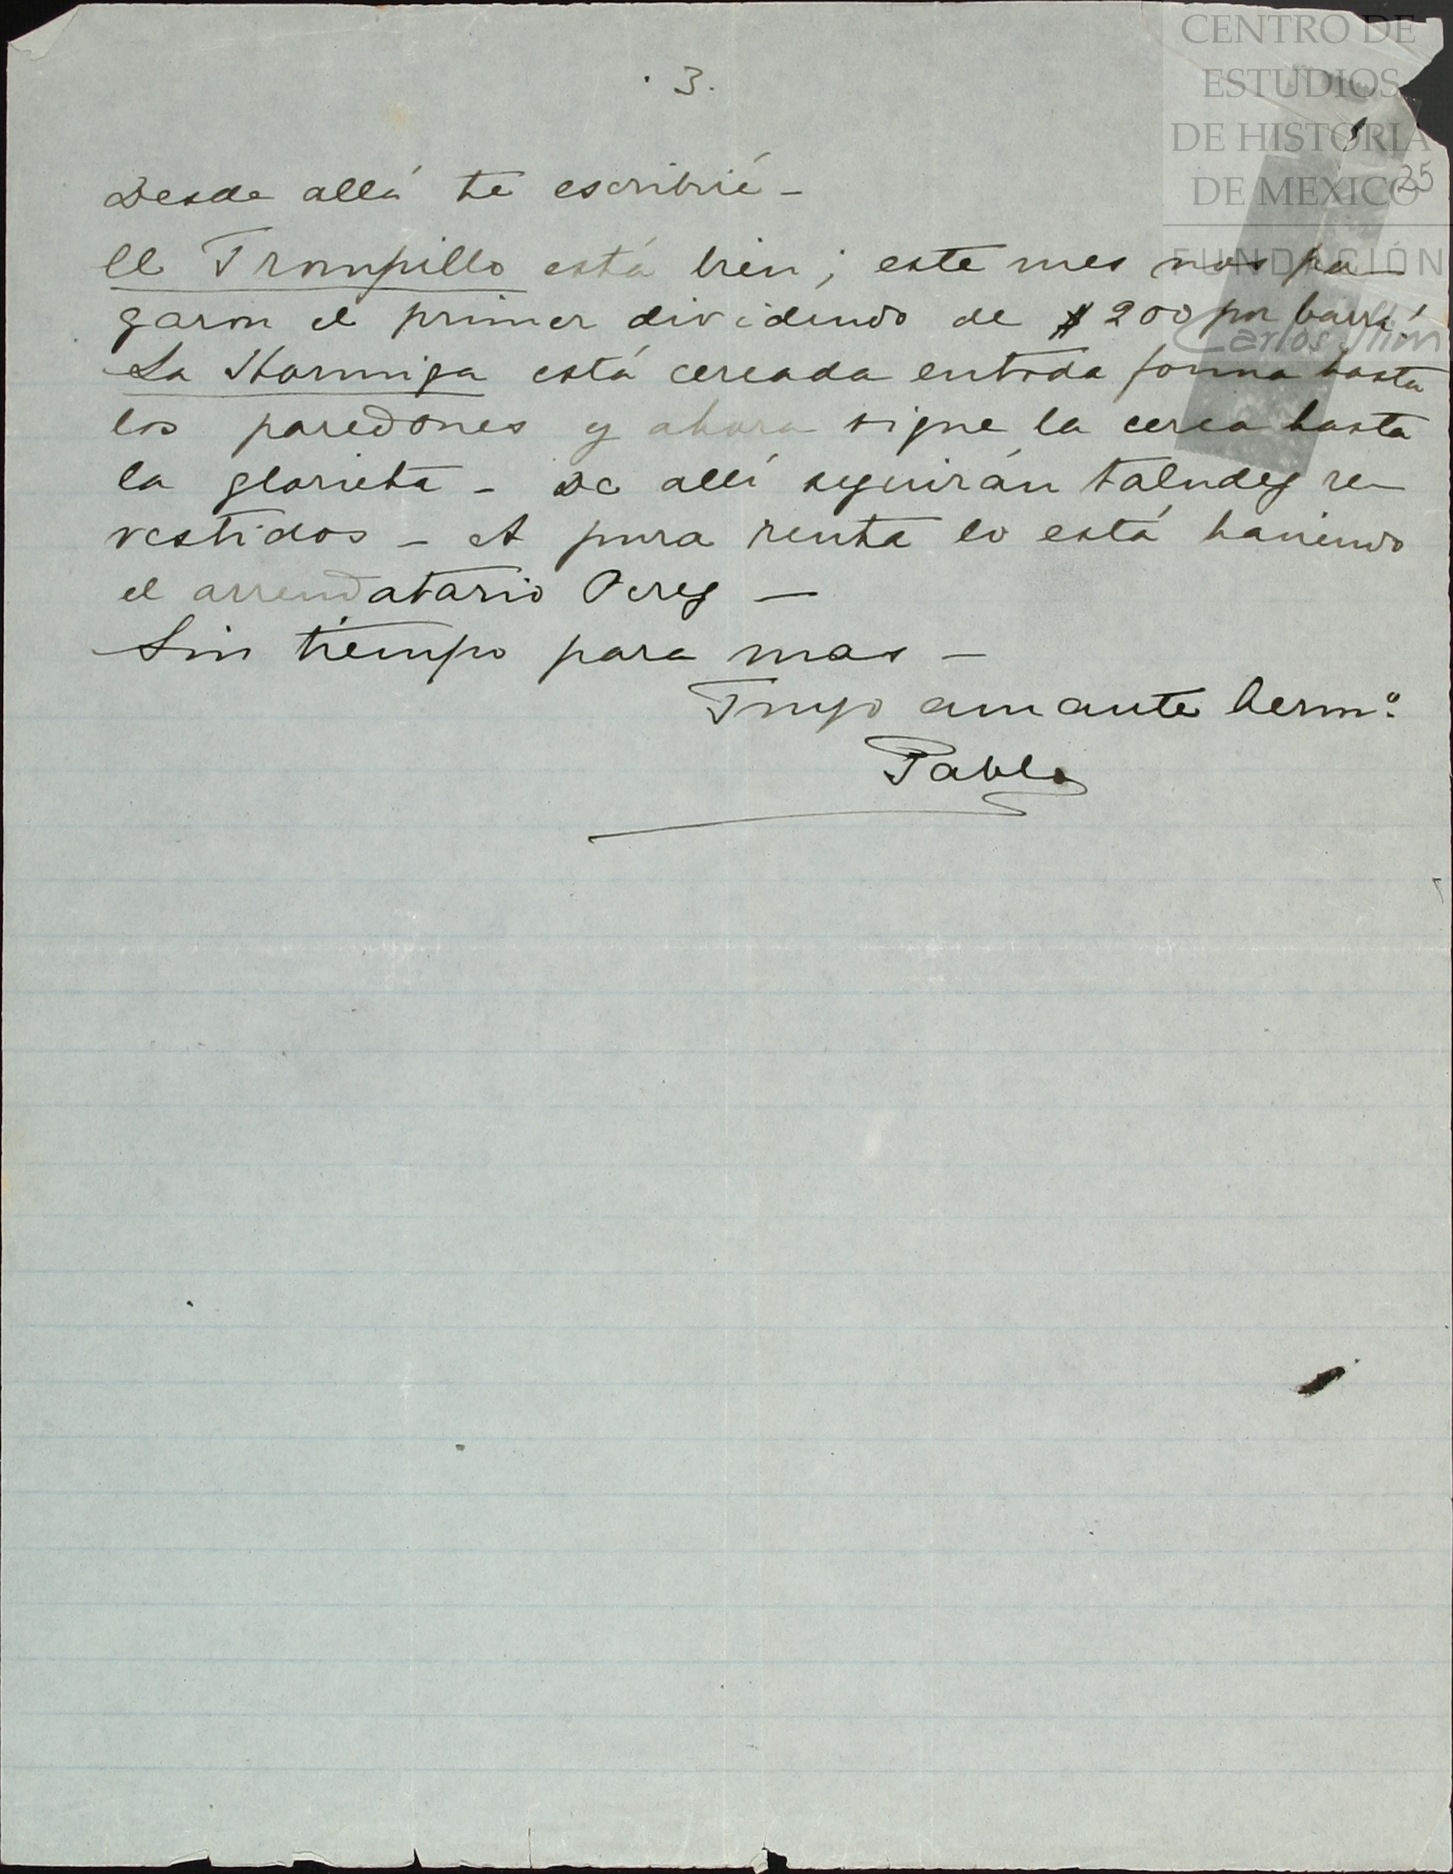 3.
CENTRO DE
ESTUDIOS
DE HISTORIA
DE MEXICO
25
FUNDACIÓN
Carlos Slim
Desde allá te escribié -
El Trompillo está bien; este mes nos pa-
garon el primer dividendo de $200 por barra!
La Hormiga está cercada en toda forma hasta
los paredones y ahora sigue la cerca hasta
la glorieta - De allí seguirán taludes re-
vestidos - A pura renta lo está haciendo
el arrendatario Perez -
Sin tiempo para mas -
Tuyo amante herm.º
Pablo